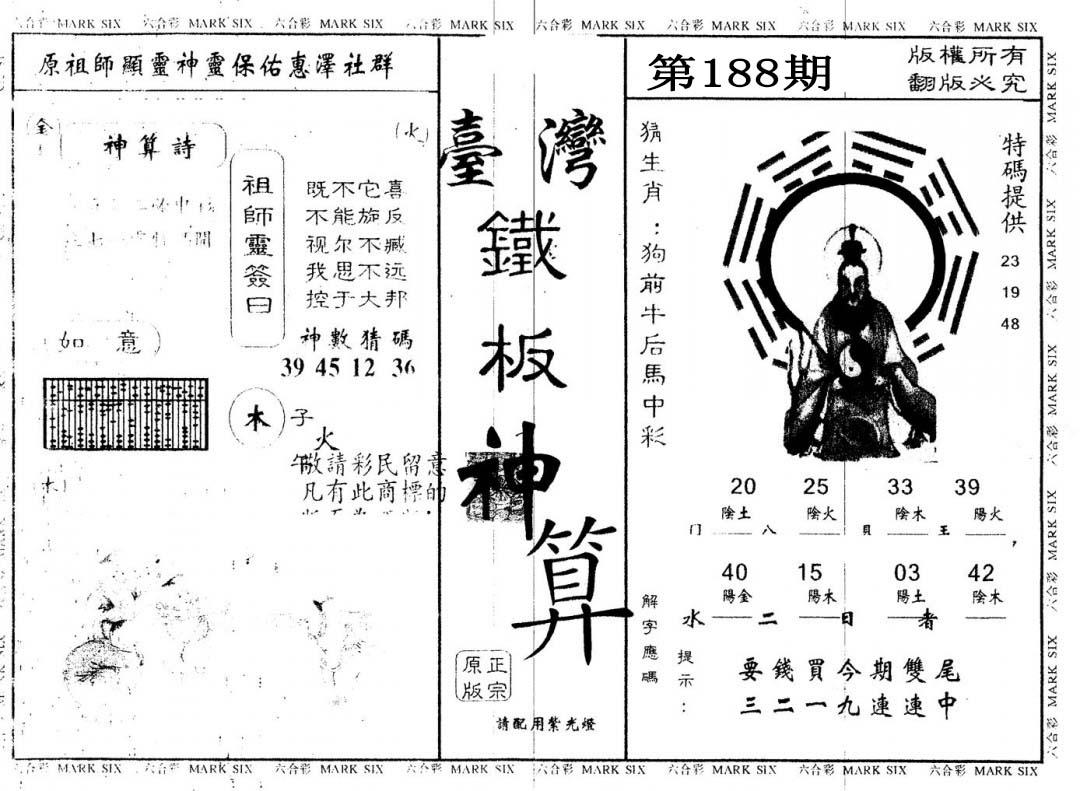 六合彩 MARK SIX 六合彩 MARK SIX 六合彩 MARK SIX 六合彩 MARK SIX 六合彩 MARK SIX 六合彩 MARK SIX 六合彩 MARK SIX 六合彩 MARK SIX
原祖師顯靈神靈保佑惠澤社群
金
神算詩
(火)
祖師靈簽曰
既不它喜
不能旋反
视尔不臧
我思不远
控于大邦
神數猜碼
39 45 12 36
如意
木
子
火
午
敬請彩民留意
凡有此商標的
木
臺灣
鐵板神算
正宗
原版
請配用紫光燈
第188期
版權所有
翻版必究
猜生肖：狗前牛后馬中彩
特碼提供
23
19
48
20 25 33 39
陰土 陰火 陰木 陽火
门 八 貝 王
40 15 03 42
陽金 陽木 陽土 陰木
水 二 日 者
解字應碼
提示：
要錢買今期雙尾
三二一九連連中
六合彩 MARK SIX 六合彩 MARK SIX 六合彩 MARK SIX 六合彩 MARK SIX 六合彩 MARK SIX
六合彩 MARK SIX 六合彩 MARK SIX 六合彩 MARK SIX 六合彩 MARK SIX 六合彩 MARK SIX 六合彩 MARK SIX 六合彩 MARK SIX 六合彩 MARK SIX